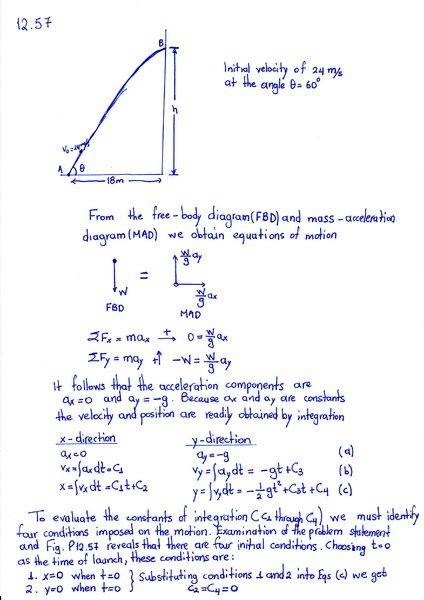 12.57
B
h
V₀=24m/s
A
θ
18m
Initial velocity of 24 m/s
at the angle θ=60°
From the free-body diagram (FBD) and mass-acceleration
diagram (MAD) we obtain equations of motion
W
FBD
=
W/g ay
W/g ax
MAD
ΣFx = max →+ 0 = W/g ax
ΣFy = may +↑ -W = W/g ay
It follows that the acceleration components are
ax=0 and ay=-g. Because ax and ay are constants
the velocity and position are readily obtained by integration
x-direction y-direction
ax=0 ay=-g (a)
vx=∫ax dt=C1 vy=∫ay dt = -gt+C3 (b)
x=∫vx dt =C1t+C2 y=∫vy dt = -1/2 gt²+C3t+C4 (c)
To evaluate the constants of integration (C1 through C4) we must identify
four conditions imposed on the motion. Examination of the problem statement
and Fig. P12.57 reveals that there are four initial conditions. Choosing t=0
as the time of launch, these conditions are:
1. x=0 when t=0 } Substituting conditions 1 and 2 into Eqs (c) we get
2. y=0 when t=0 } C2=C4=0